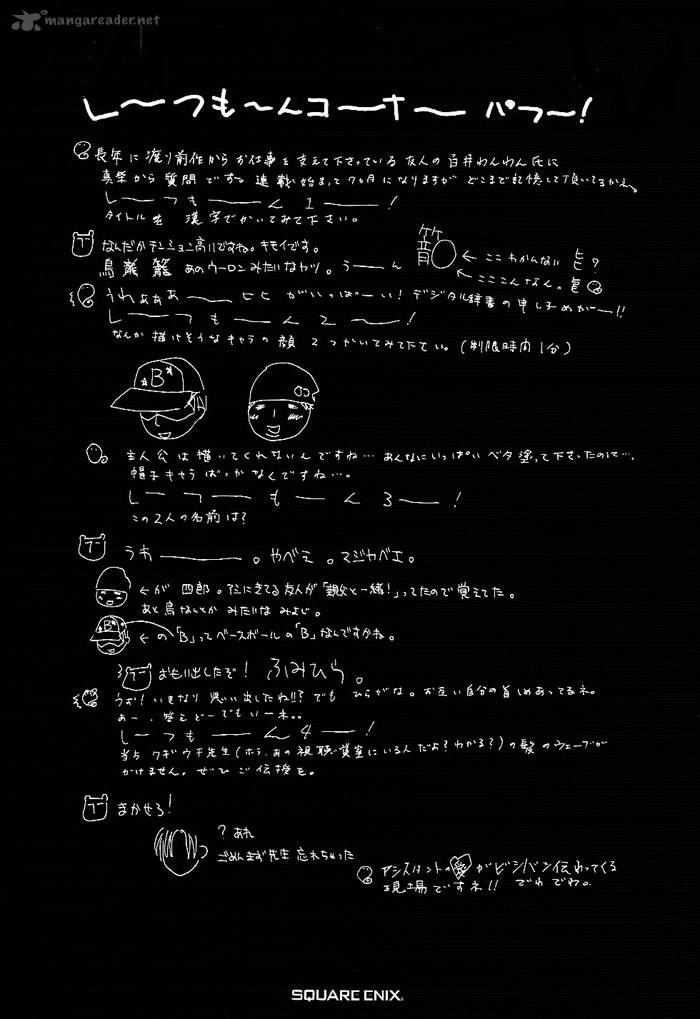 mangareader.net
し〜つも〜んコ〜ナ〜 パフ〜!
長年に渡り前作からお仕事を支えて下さっている友人の百井わんわん氏に
真柴から質問です。連載始まって7ヵ月になりますがどこまで記憶して頂いてるかネ。
し〜つも〜ん1〜!
タイトルを漢字でかいてみて下さい。
なんだかテンション高いですね。キモイです。
鳥 籠 あのウーロンみたいなヤツ。う〜ん
← ここわかんない ヒ?
← こここんなん。
うわぁぁぁ〜 ヒヒ がいっぱーい! デジタル辞書の申し子めがー!!
し〜つも〜ん2〜!
なんか描けそうなキャラの顔2つかいてみて下さい。(制限時間1分)
B
主人公は描いてくれないんですね…あんなにいっぱいベタ塗って下さったのに…。
帽子キャラばっかなんですね…。
し〜つ〜も〜ん3〜!
この2人の名前は?
うわ〜。やべえ。マジヤベエ。
←が四郎。アシにきてる友人が「親父と一緒!」ってたので覚えてた。
あと鳥なんとかみたいなみよじ。
B
←の「B」ってベースボールの「B」なんですかね。
おもい出したぞ! ふみひら。
うお!いきなり思い出したね!!?でもひらがな。お互い自分の首しめあってるネ。
あー、答えどーでもいーネ。。
し〜つも〜ん4〜!
当方クギウチ先生(ホラ、あの視聴覚室にいる人だよ?わかる?)の髪のウェーブが
かけません。ぜひご伝授を。
まかせろ!
?あれ
ごめんまず先生忘れちゃった
アシスタントの愛がビシバシ伝わってくる
現場ですネ!! でわでわ。
SQUARE ENIX.